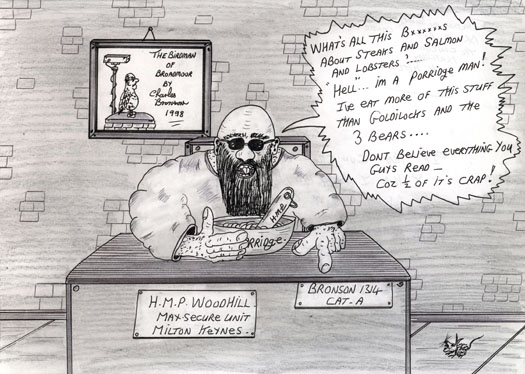 THE BIRDMAN
OF
BROADMOUR
BY
Charles
Bronson
1998
WHAT'S ALL THIS BXXXXXXS
ABOUT STEAKS AND SALMON
AND LOBSTERS
"HELL"... IM A PORRIDGE MAN!
I'VE EAT MORE OF THIS STUFF
THAN GOLDILOCKS AND THE
3 BEARS....
DONT BELIEVE EVERYTHING YOU
GUYS READ —
COZ ½ OF IT'S CRAP!
H.M.P.
PORRIDGE.
H.M.P. WOODHILL
MAX SECURE UNIT
MILTON KEYNES..
BRONSON 1314
CAT-A